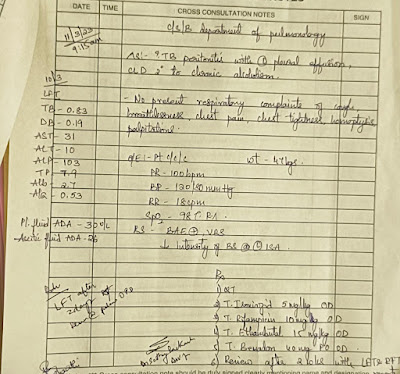 DATE TIME CROSS CONSULTATION NOTES SIGN
11/3/23
9:15am
C/S/B Department of pulmonology
AS:- ? TB peritonitis with pleural effusion,
CLD 2° to chronic alcoholism.
10/3
LFT
TB - 0.83
DB - 0.19
AST - 31
ALT - 10
ALP - 103
TP - 7.9
Alb - 2.7
A/G - 0.53
- No present respiratory complaints of cough,
breathlessness, chest pain, chest tightness, hemoptysis
palpitations.
O/E :- Pt c/c/c wt - 47kgs.
PR - 100bpm
BP - 120/80 mmHg
RR - 18cpm
SpO2 - 98% RA
Pl. fluid ADA - 30
Ascitic fluid ADA - 26
RS - BAE⊕, VBS
↓ intensity of BS @ ISA
LFT after
2 days
Rx
2) T. Isoniazid 5mg/kg OD
3) T. Rifampicin 10mg/kg OD
4) T. Ethambutol 15mg/kg OD
5) T. Benadon 40mg PO OD
6) Review after 2 wks with LFT & RFT
note should be duly signed clearly mentioning name and designation